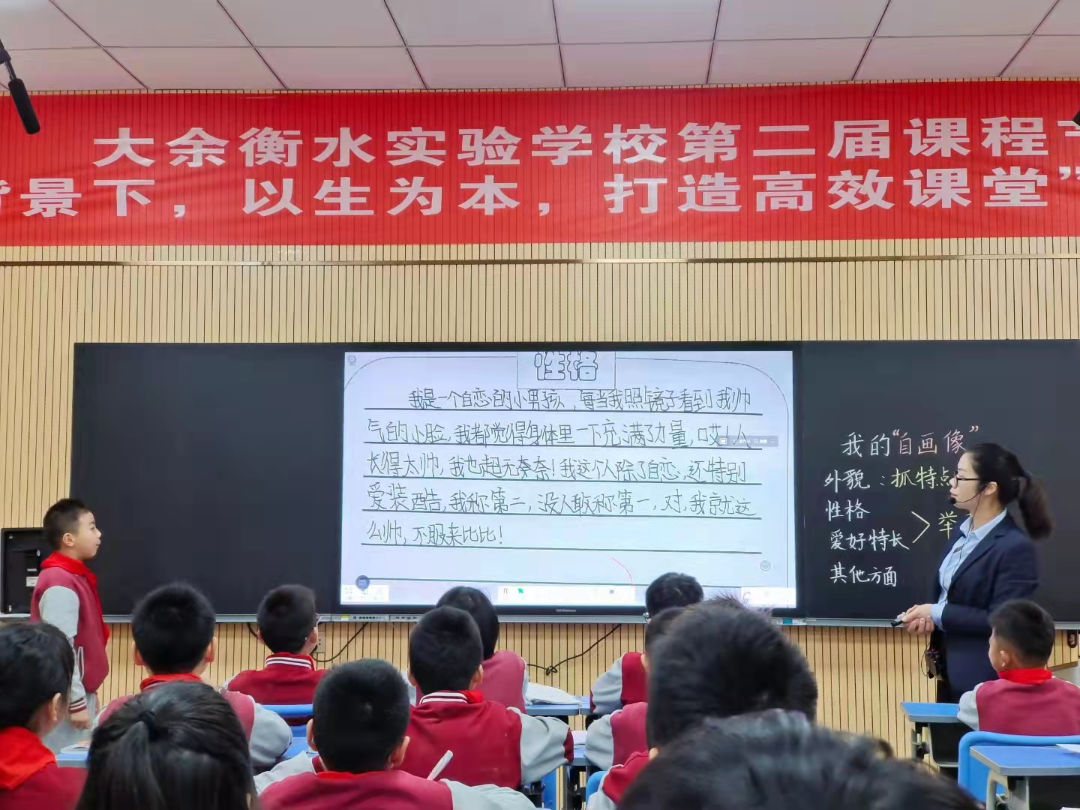 大余衡水实验学校第二届课程
背景下，以生为本，打造高效课堂”
性格
我是一个自恋的小男孩，每当我照镜子看到我帅
气的小脸，我都觉得身体里一下充满了力量，哎！人
长得太帅，我也超无奈奈！我这个人除了自恋，还特别
爱装酷，我称第二，没人敢称第一，对，我就这
么帅，不服来比比！
我的“自画像”
外貌：抓特点
性格
爱好特长 > 举
其他方面